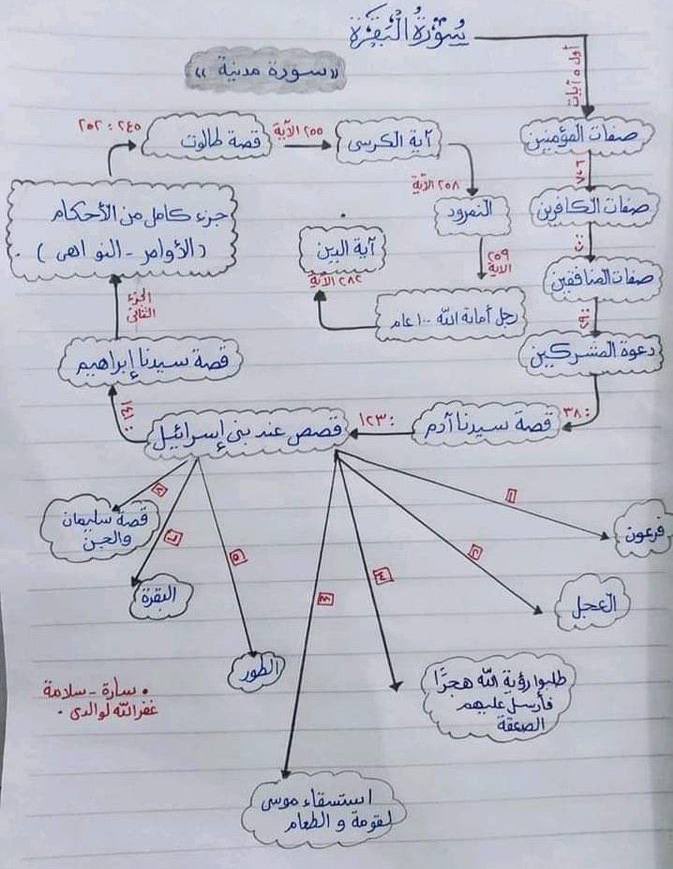 سورة البقرة
«سورة مدنية»
أول ٥ آيات
صفات المؤمنين
٧،٦
صفات الكافرين
صفات المنافقين
دعوة المشركين
٣٨:
قصة سيدنا آدم
١٢٣:
قصص عند بني إسرائيل
١
فرعون
٢
العجل
٤
طلبوا رؤية الله هجرًا
فأرسل عليهم
الصعقة
٣
استسقاء موسى
لقومة و الطعام
٥
الطور
البقرة
قصة سليمان
والجن
١٤١:
قصة سيدنا إبراهيم
الجزء
الثاني
جزء كامل من الأحكام
(الأوامر - النواهي).
٢٥٢:٢٤٥
قصة طالوت
٢٥٥ الآية
آية الكرسي
٢٥٨ الآية
النمرود
٢٥٩
الاية
رجل أماتة الله ١٠٠ عام
٢٨٢ الآية
آية الين
• سارة - سلامة
غفر الله لوالدي •